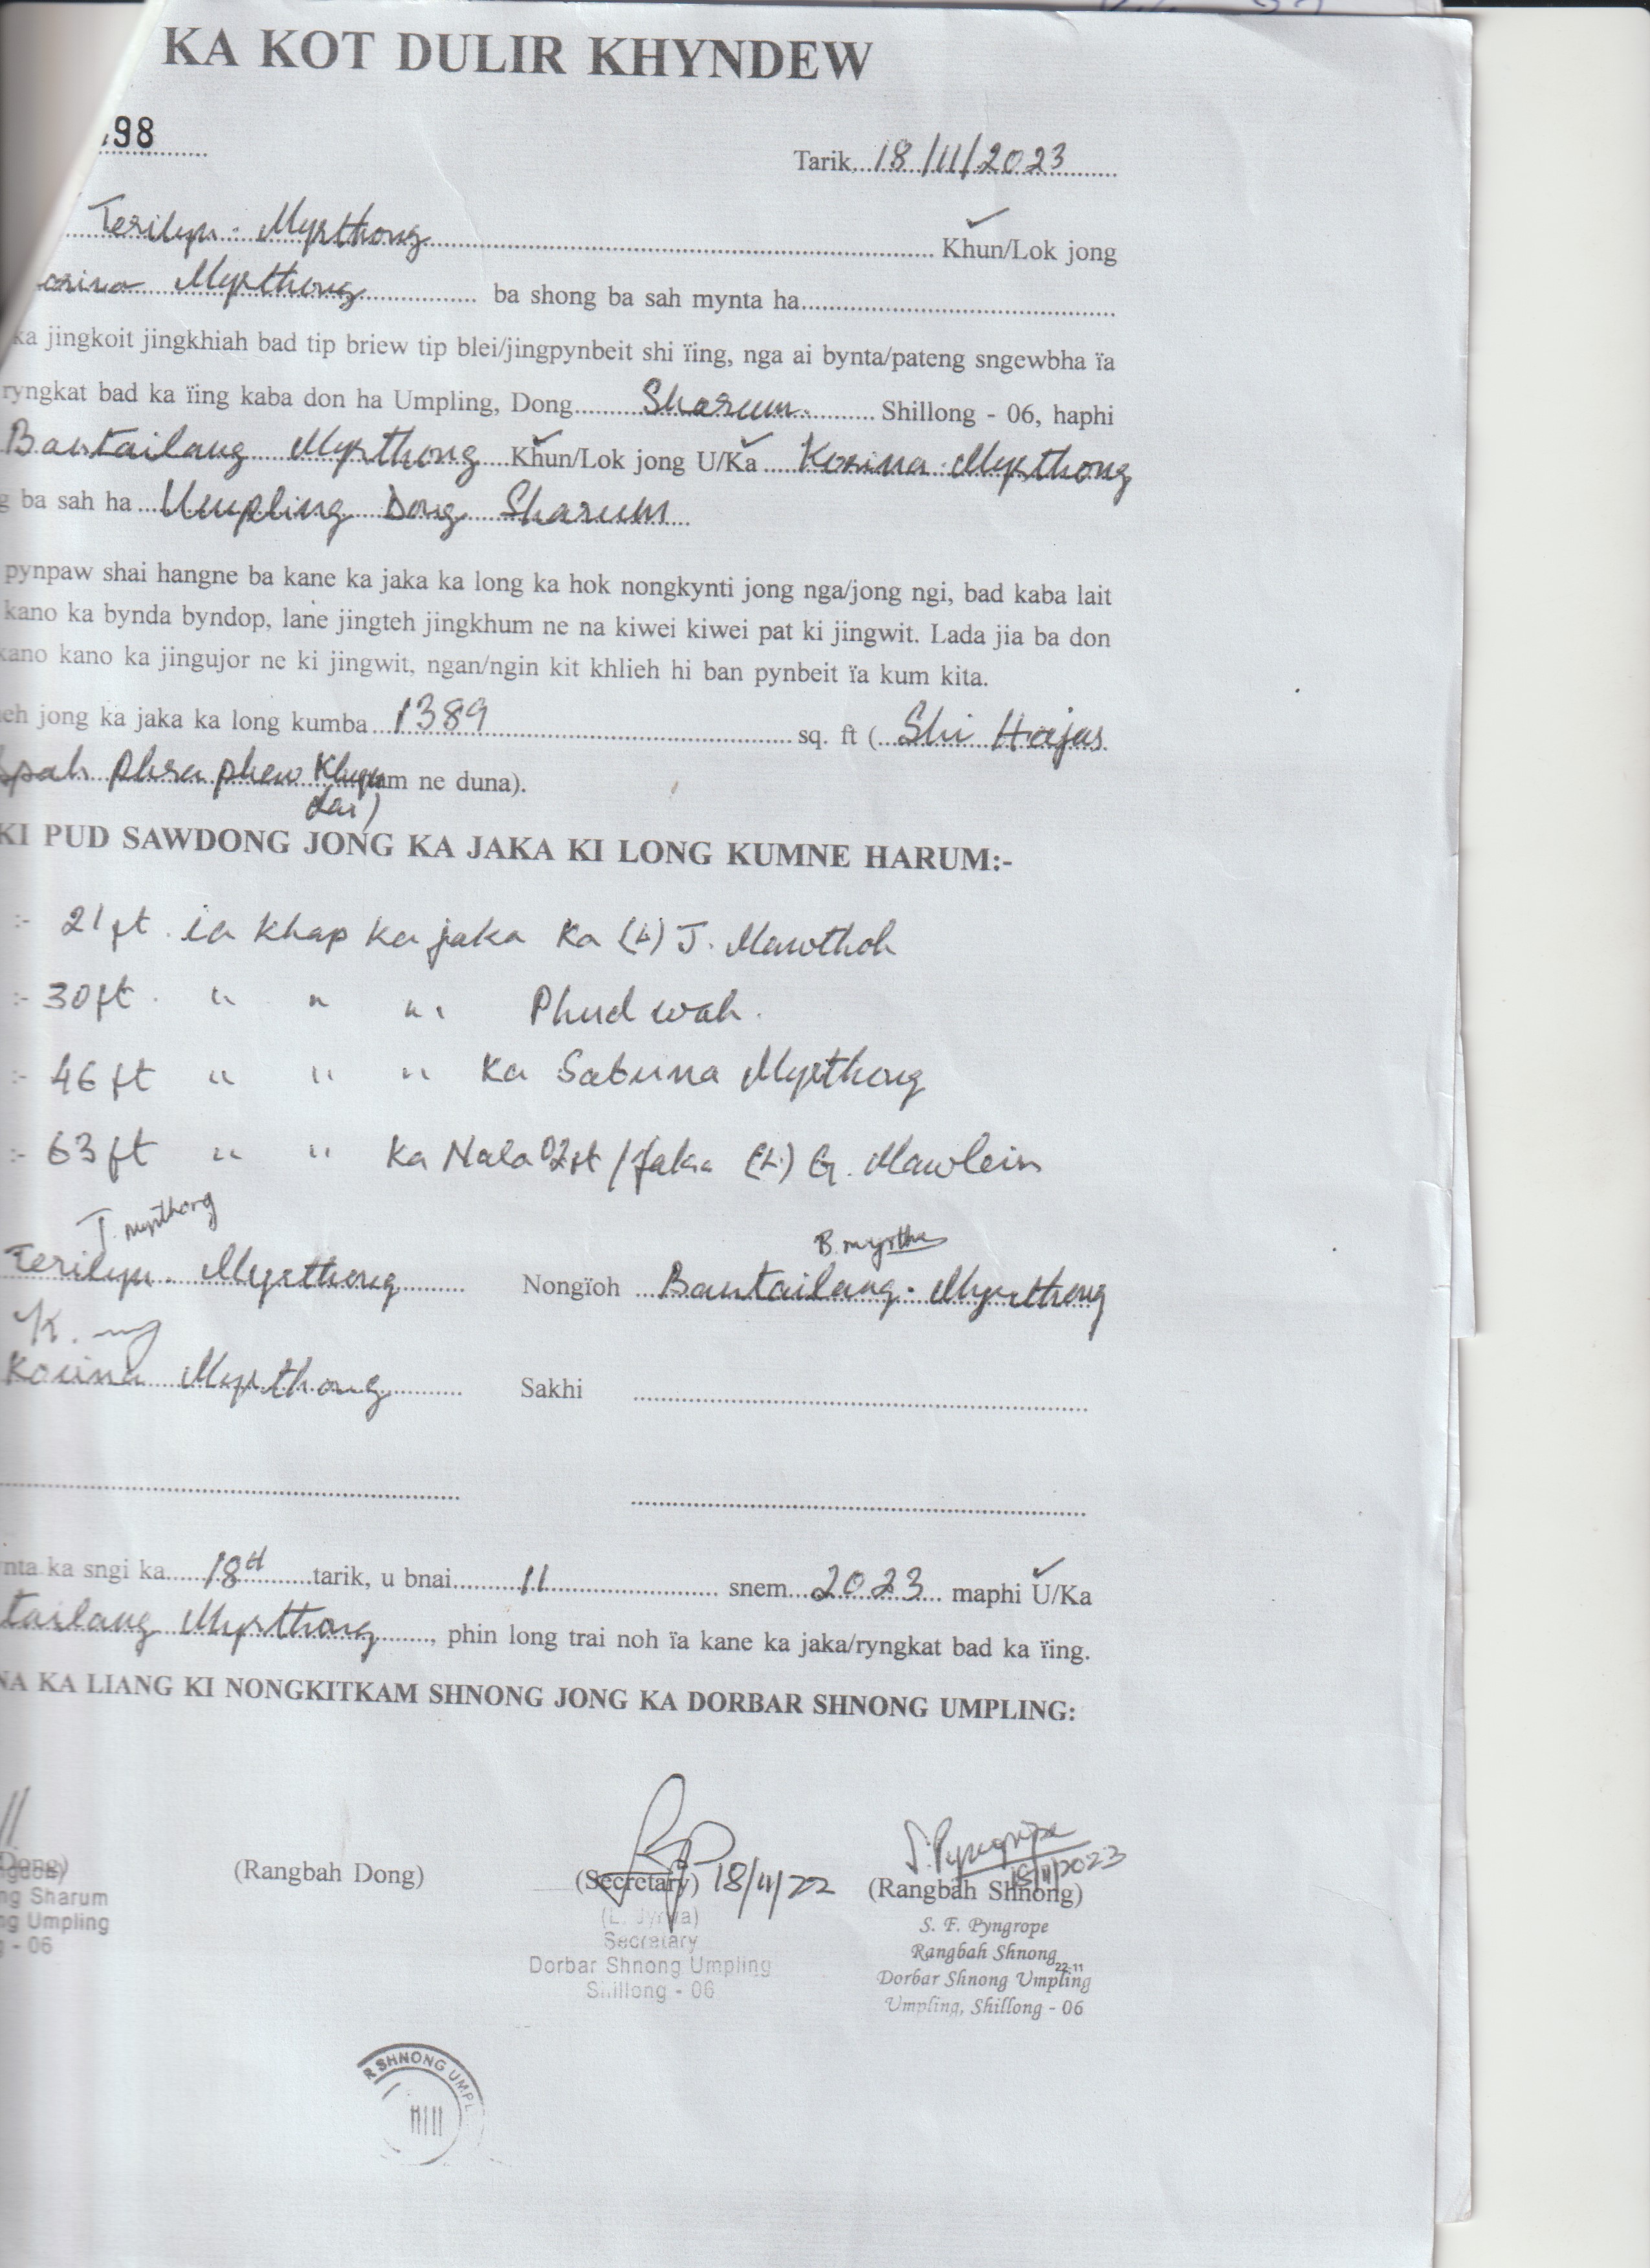 KA KOT DULIR KHYNDEW
98
Tarik 18/11/2023
Terilyn. Myrthong Khun/Lok jong
Myrthong ba shong ba sah mynta ha
ka jingkoit jingkhiah bad tip briew tip blei/jingpynbeit shi ïing, nga ai bynta/pateng sngewbha ïa
ryngkat bad ka ïing kaba don ha Umpling, Dong Sharum Shillong - 06, haphi
Bantailang Myrthong Khun/Lok jong U/Ka Korina Myrthong
ba sah ha Umpling Dong Sharum
pynpaw shai hangne ba kane ka jaka ka long ka hok nongkynti jong nga/jong ngi, bad kaba lait
kano ka bynda byndop, lane jingteh jingkhum ne na kiwei kiwei pat ki jingwit. Lada jia ba don
kano kano ka jingujor ne ki jingwit, ngan/ngin kit khlieh hi ban pynbeit ïa kum kita.
jong ka jaka ka long kumba 1389 sq. ft ( Shi Hajar
spah phra phew Khyn am ne duna).
dai)
KI PUD SAWDONG JONG KA JAKA KI LONG KUMNE HARUM:-
:- 21 ft. ia khap ka jaka Ka (L) J. Mawthoh
:- 30 ft. " " " Phud wah.
:- 46 ft " " " Ka Sabuna Myrthong
:- 63 ft " " Ka Nala 02 ft / Jaka (L) G. Mawlein
T. Myrthong
B. Myrtho
Terilyn. Myrthong Nongïoh Bantailang. Myrthong
K.
Korina Myrthong Sakhi
ka sngi ka 18th tarik, u bnai 11 snem 2023 maphi U/Ka
tailang Myrthong, phin long trai noh ïa kane ka jaka/ryngkat bad ka ïing.
NA KA LIANG KI NONGKITKAM SHNONG JONG KA DORBAR SHNONG UMPLING:
S. Pyngrope
18/11/2023
Dong) (Rangbah Dong) (Secretary) 18/11/22 (Rangbah Shnong)
Sharum
Umpling
- 06
Secretary
Dorbar Shnong Umpling
Shillong - 06
S. F. Pyngrope
Rangbah Shnong
22-11
Dorbar Shnong Umpling
Umpling, Shillong - 06
R SHNONG UMPL